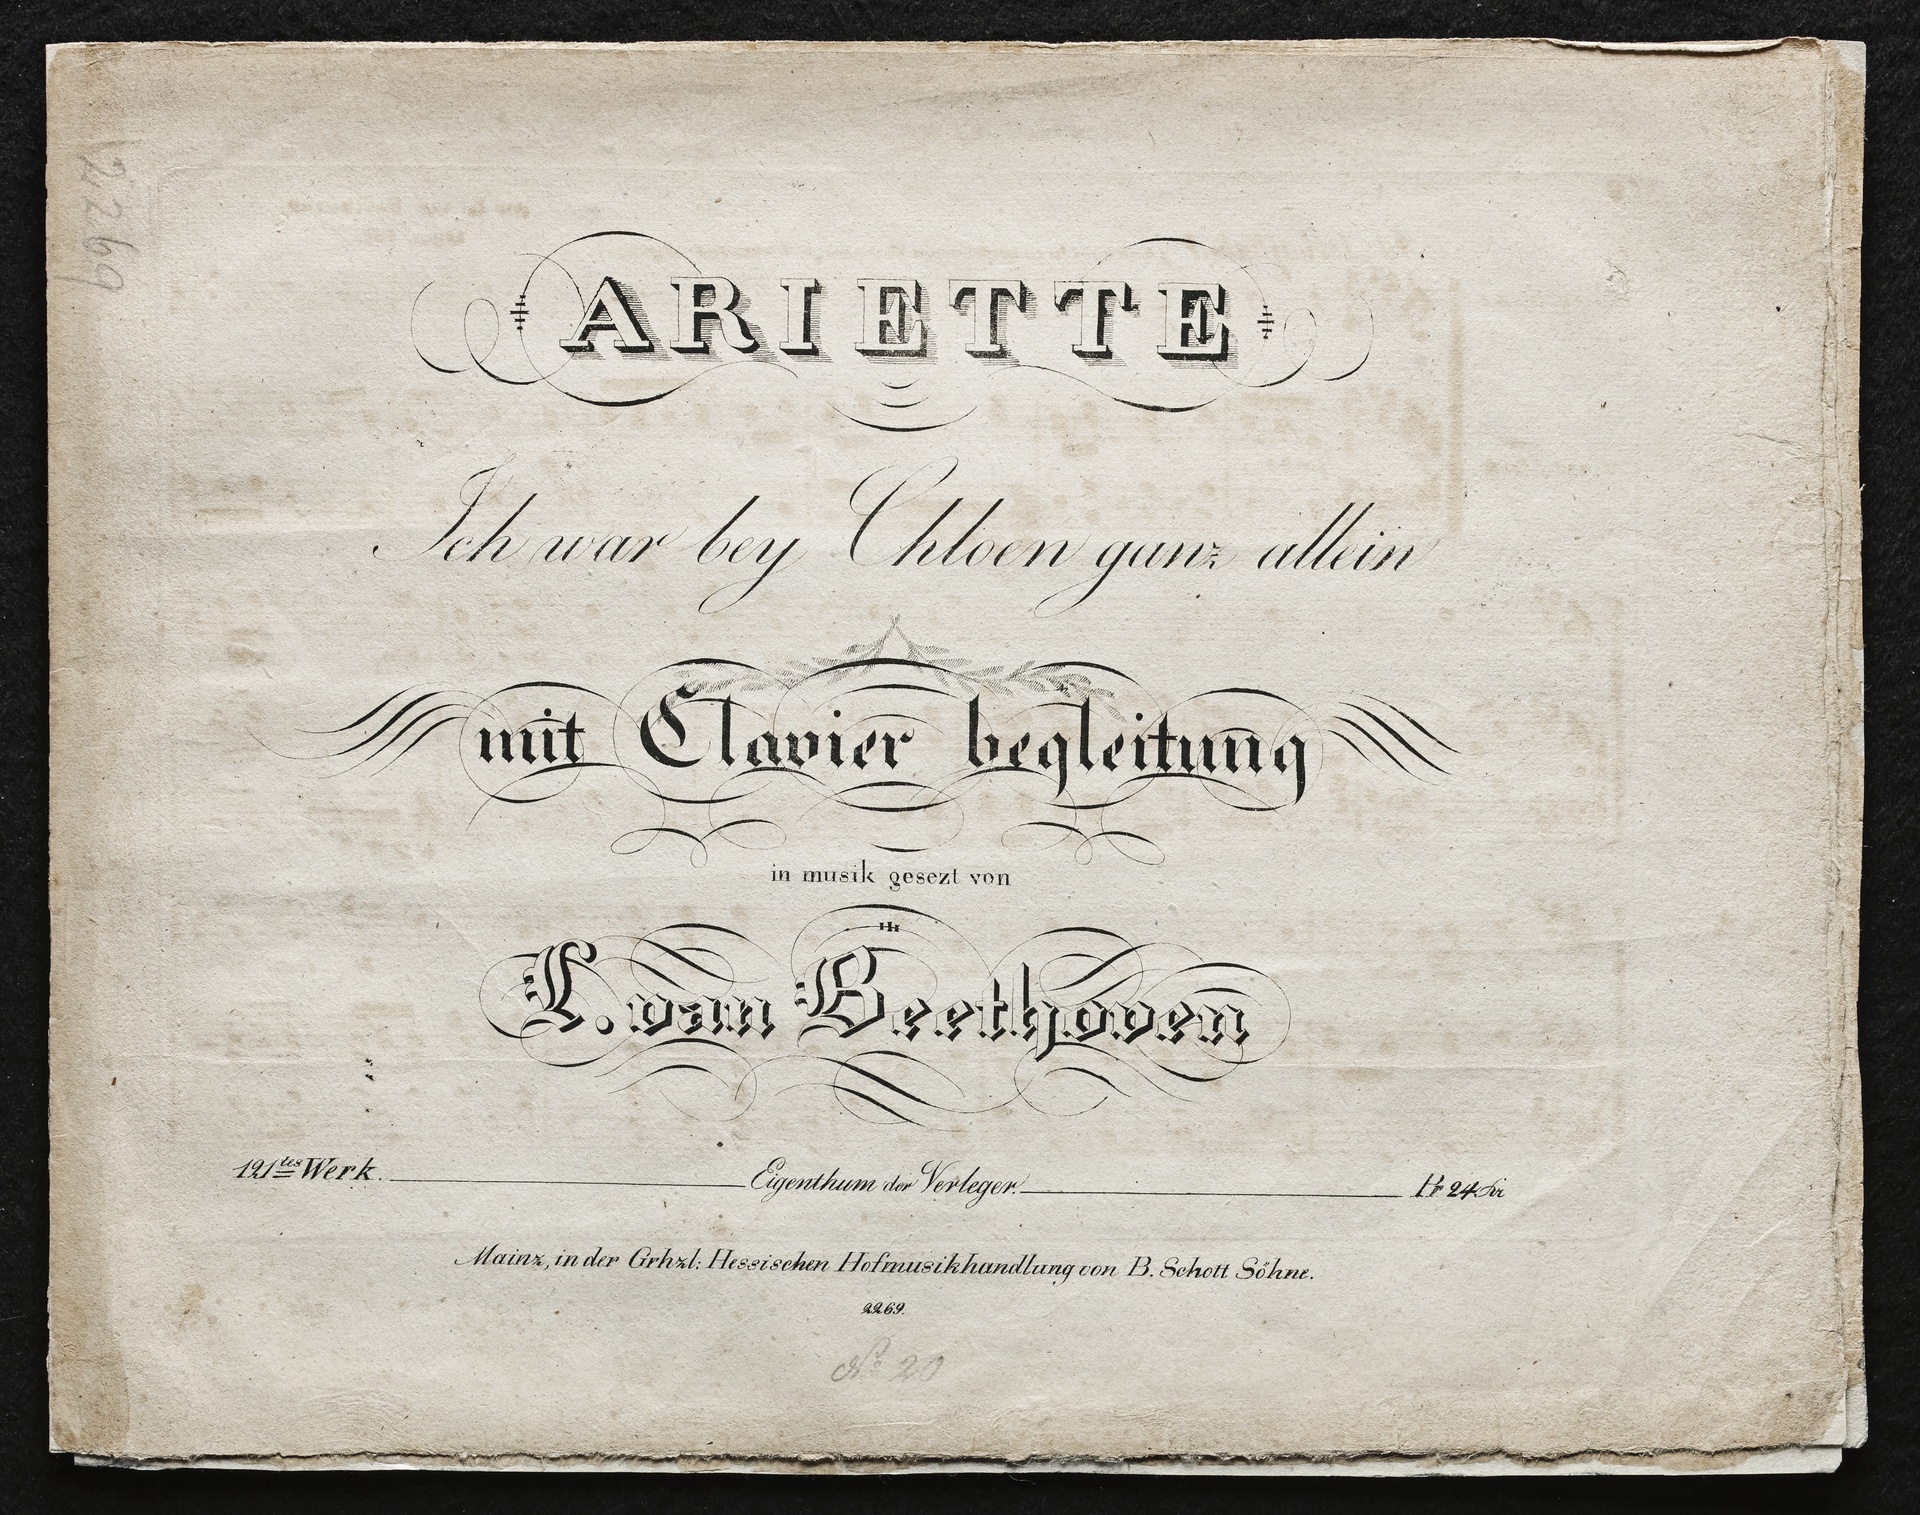 2269
ARIETTE
Ich war bey Chloen ganz allein
mit Clavier begleitung
in musik gesezt von
L. van Beethoven
121tes Werk. Eigenthum der Verleger. Pr 24 Xr
Mainz, in der Grhzl: Hessischen Hofmusikhandlung von B. Schott Söhne.
2269.
No 20